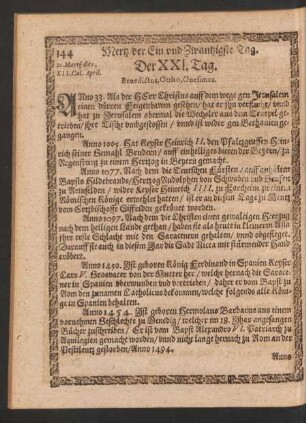 144 Mertz der Ein vnd Zwäntzigste Tag.
21. Martij dies,
XII. Cal. April.
Der XXI. Tag.
Benedictus, Ottho, Onesimus.
Anno 33. Als der HErr Christus auff dem wege gen Jerusalem
einen dürren Feigenbawm gesehen, hat er jhn verflucht, vnd
hat zu Jerusalem abermal die Wechsler aus dem Tempel ge-
trieben, jhre Tische vmbgestossen, vnnd ist wider gen Bethanien ge-
gangen.
Anno 1005. Hat Keyser Heinrich II. den Pfaltzgraffen Hein-
rich seiner Gemahl Brudern, auff einhelliges bitten der Beyern, zu
Regenspurg zu einem Hertzog in Beyern gemacht.
Anno 1077. Nach dem die Teutschen Fürsten, auff anstifften
Bapsts Hildebrands, Hertzog Rudolphen von Schwaben vnd Graffen
zu Reinfelden, wider Keyser Heinrich IIII. zu Forchheim zu einem
Römischen Könige erwehlet hatten, ist er an diesem Tage zu Mentz
vom Ertzbischoffe Siffrieden gekrönet worden.
Anno 1097. Nach dem die Christen einen gewaltigen Heerzug
nach dem heiligen Lande gethan, haben sie als heut im Newem Alter
jhre erste Schlacht mit den Saracenen gehalten, vnnd obgesieget.
Darauff sie auch in diesem Jar die Stadt Nicea mit stürmender Hand
eröbert.
Anno 1450. Ist geborn König Ferdinand in Spanien Keyser
Cars V. Grosvater von der Mutter her, welche hernach die Sarace-
ner in Spanien vberwunden vnd vertrieben, daher er vom Bapst zu
Rom den zunamen Catholicus bekommen, welche folgends alle Köni-
ge in Spanien behalten.
Anno 1454. Ist geboren Hermolaus Barbarus aus einem
vornemen Geschlechte zu Venedig, welcher im 18. Jhar angefangen
Bücher zuschreiben, Er ist vom Bapst Alexandro VI. Patriarch zu
Aquilegien gemacht worden, vnnd nicht lange hernach zu Rom an der
Pestilentz gestorben, Anno 1494.
Anno